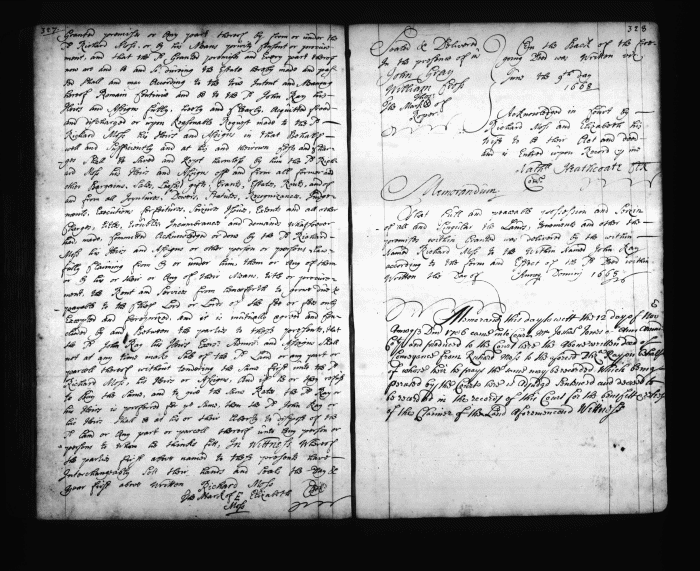 327
Granted premises or Any part thereof by from or under the
Sd Richard Moss, or by his Means privity Consent or procure-
ment, and that the Sd Granted premises and Every part thereof
now are and be and So during the Estate hereby made and past
be Shall and may According to the true Intent and Meaning
hereof Remain Continue and be to the Sd John Ray his
Heirs and Assigns fully, freely and Clearly Acquitted freed
and discharged or upon Reasonable Request made to the Sd
Richard Moss his Heirs and Assigns in that Behalf
well and Sufficiently and at his and their own Costs and Charg-
es Shall be Saved and Kept harmless by him the Sd Rich
ard Moss his Heirs and Assigns of and from all former and
other Bargains, Sales, Leases gifts, Grants, Estates, Rents, and of
and from all Joyntures, Dowers, Statutes, Recognizances, Judge-
ments, Executions forfeitures, Extents and all other
Charges, titles, troubles Incumbrances and demands whatsoever
had made, Committed Acknowledged or done by the Sd Richard
Moss his Heirs and Assigns or other person or persons Law-
fully Claiming from by or under him, them or Any of them
or by his or their or Any of their Means, title or procure-
ment. the Rent and Services from henceforth to grow due &
payable to the Cheif Lord or Lords of the fee or fees only
Excepted and foreprized, and it is mutually agreed and Con-
cluded by and between the parties to these presents, that
the Sd John Ray his Heirs Execrs Admrs and Assigns Shall
not at any time make Sale of the Sd Land or any part or
parcell thereof without tendering the Same first unto the Sd
Richard Moss, his Heirs or Assigns, and if he or they refuse
to buy the Same, and to give the Same Rate the Sd Ray or
his Heirs is proffered for ye Same, then the Sd John Ray or
his Heirs Shall be at his or their liberty to dispose of the
Sd Land or Any part or parcell thereof unto Any person or
persons to whom he thinks fitt, In Wittness Whereof
the parties first above named to these presents have
Interchangeably Sett their hands and Seals the day &
year first above Written
Richard Moss
the Mark of E Elizabeth
Moss
328
Sealed & Delivered
In the presence of us
John Gray
William Cross
the Mark of
Roper
On the Back of the fore-
going Deed was Written viz
June the 9th day
1668
Acknowledged in Court by
Richard Moss and Elizabeth his
Wife to be their Act and deed
and is Entred upon Record p me
Nathll Heathcoate Clk
Com
Memorandum
That full and peaceable possession and Seizin
of all and Singular the Lands, tenements and other the
premises within Granted was delivered by the within
Named Richard Moss to the within Named John Ray
according to the form and Effect of the Sd Deed within
Written the Day of Annoq Domini 1668
Memorand this day to witt the 12 day of Nov
Annoqe Dni 1726 came into Court Mr James
and produced to the Court here the above written deed of
Conveyance from Richard Moss to the ye said Jno Ray on behalf
of whose heir he prays the same may be recorded Which being
perused by the Court here is Adjudg Indented and decreed to
be recorded in the records of this Court for the benefit
of the Claimer of the Land aforementioned Wittness